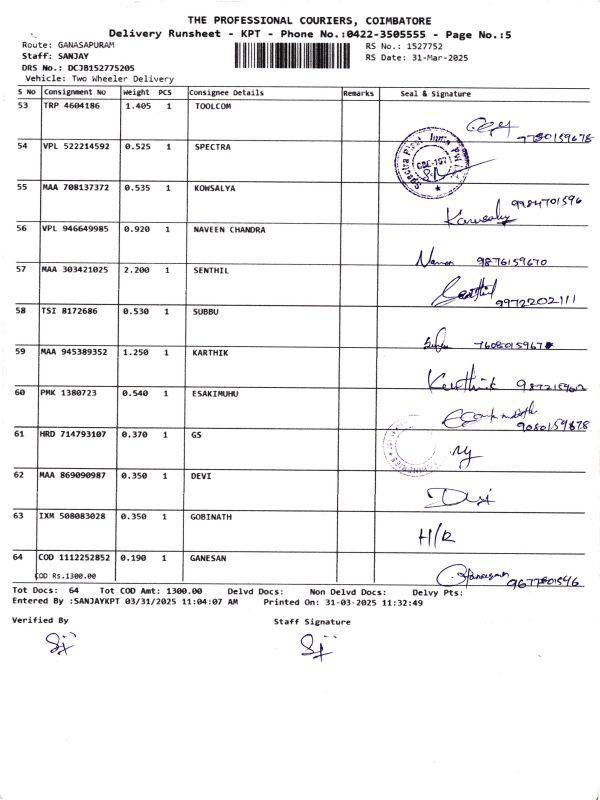 THE PROFESSIONAL COURIERS, COIMBATORE
Delivery Runsheet - KPT - Phone No.:0422-3505555 - Page No.:5
Route: GANASAPURAM
RS No.: 1527752
Staff: SANJAY
RS Date: 31-Mar-2025
DRS No.: DCJB152775205
Vehicle: Two Wheeler Delivery
S No Consignment No Weight PCS Consignee Details Remarks Seal & Signature
53 TRP 4604186 1.405 1 TOOLCOM
7780159678
54 VPL 522214592 0.525 1 SPECTRA
Spectra India Pvt CBE-107
55 MAA 708137372 0.535 1 KOWSALYA
9984701596
Kowsalya
56 VPL 946649985 0.920 1 NAVEEN CHANDRA
9876159670
57 MAA 303421025 2.200 1 SENTHIL
9972202111
58 TSI 8172686 0.530 1 SUBBU
59 MAA 945389352 1.250 1 KARTHIK
Karthick
60 PMK 1380723 0.540 1 ESAKIMUHU
9080159878
61 HRD 714793107 0.370 1 GS
62 MAA 869090987 0.350 1 DEVI
Devi
63 IXM 508083028 0.350 1 GOBINATH
H/R
64 COD 1112252852 0.190 1 GANESAN
COD Rs.1300.00
Ganesan 9677801546
Tot Docs: 64 Tot COD Amt: 1300.00 Delvd Docs: Non Delvd Docs: Delvy Pts:
Entered By :SANJAYKPT 03/31/2025 11:04:07 AM Printed On: 31-03-2025 11:32:49
Verified By Staff Signature